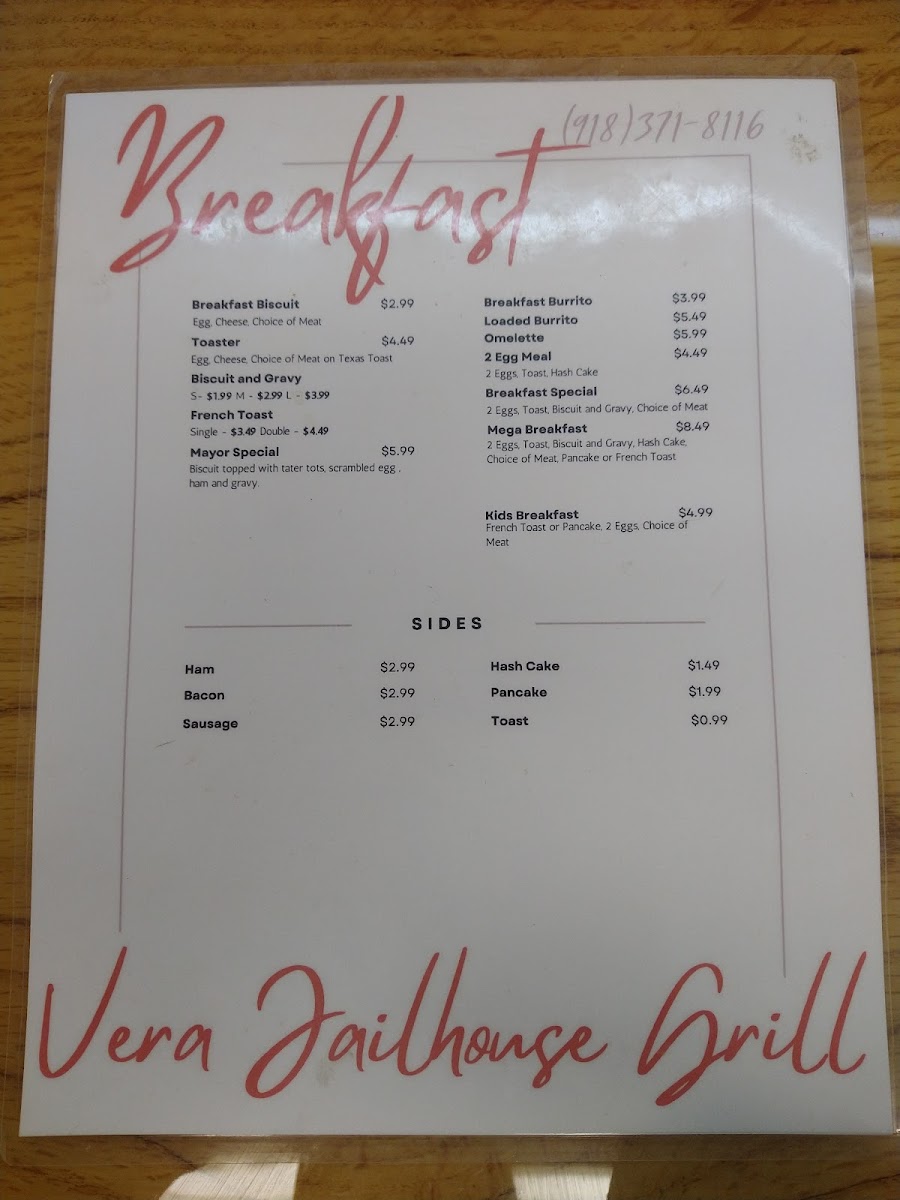 Breakfast
(918)371-8116
Breakfast Biscuit $2.99
Egg, Cheese, Choice of Meat
Toaster $4.49
Egg, Cheese, Choice of Meat on Texas Toast
Biscuit and Gravy
S- $1.99 M - $2.99 L - $3.99
French Toast
Single - $3.49 Double - $4.49
Mayor Special $5.99
Biscuit topped with tater tots, scrambled egg ,
ham and gravy.
Breakfast Burrito $3.99
Loaded Burrito $5.49
Omelette $5.99
2 Egg Meal $4.49
2 Eggs, Toast, Hash Cake
Breakfast Special $6.49
2 Eggs, Toast, Biscuit and Gravy, Choice of Meat
Mega Breakfast $8.49
2 Eggs, Toast, Biscuit and Gravy, Hash Cake,
Choice of Meat, Pancake or French Toast
Kids Breakfast $4.99
French Toast or Pancake, 2 Eggs, Choice of
Meat
SIDES
Ham $2.99
Bacon $2.99
Sausage $2.99
Hash Cake $1.49
Pancake $1.99
Toast $0.99
Vera Jailhouse Grill